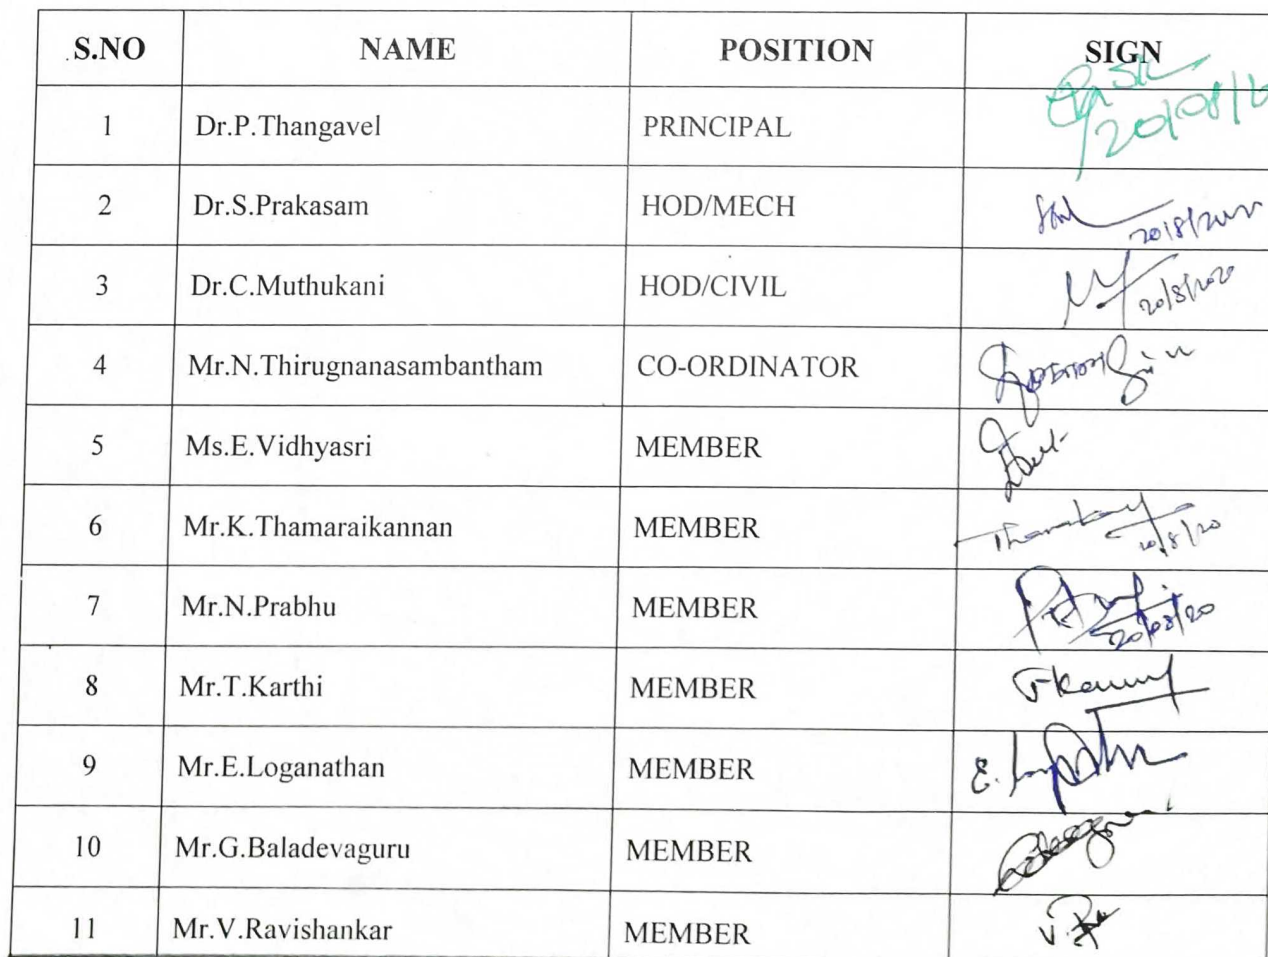 S.NO NAME POSITION SIGN
1 Dr.P.Thangavel PRINCIPAL
20/08/
2 Dr.S.Prakasam HOD/MECH
20/8/2020
3 Dr.C.Muthukani HOD/CIVIL
20/8/2020
4 Mr.N.Thirugnanasambantham CO-ORDINATOR
5 Ms.E.Vidhyasri MEMBER
6 Mr.K.Thamaraikannan MEMBER
20/8/20
7 Mr.N.Prabhu MEMBER
20/08/20
8 Mr.T.Karthi MEMBER
9 Mr.E.Loganathan MEMBER
E.
10 Mr.G.Baladevaguru MEMBER
11 Mr.V.Ravishankar MEMBER
V.